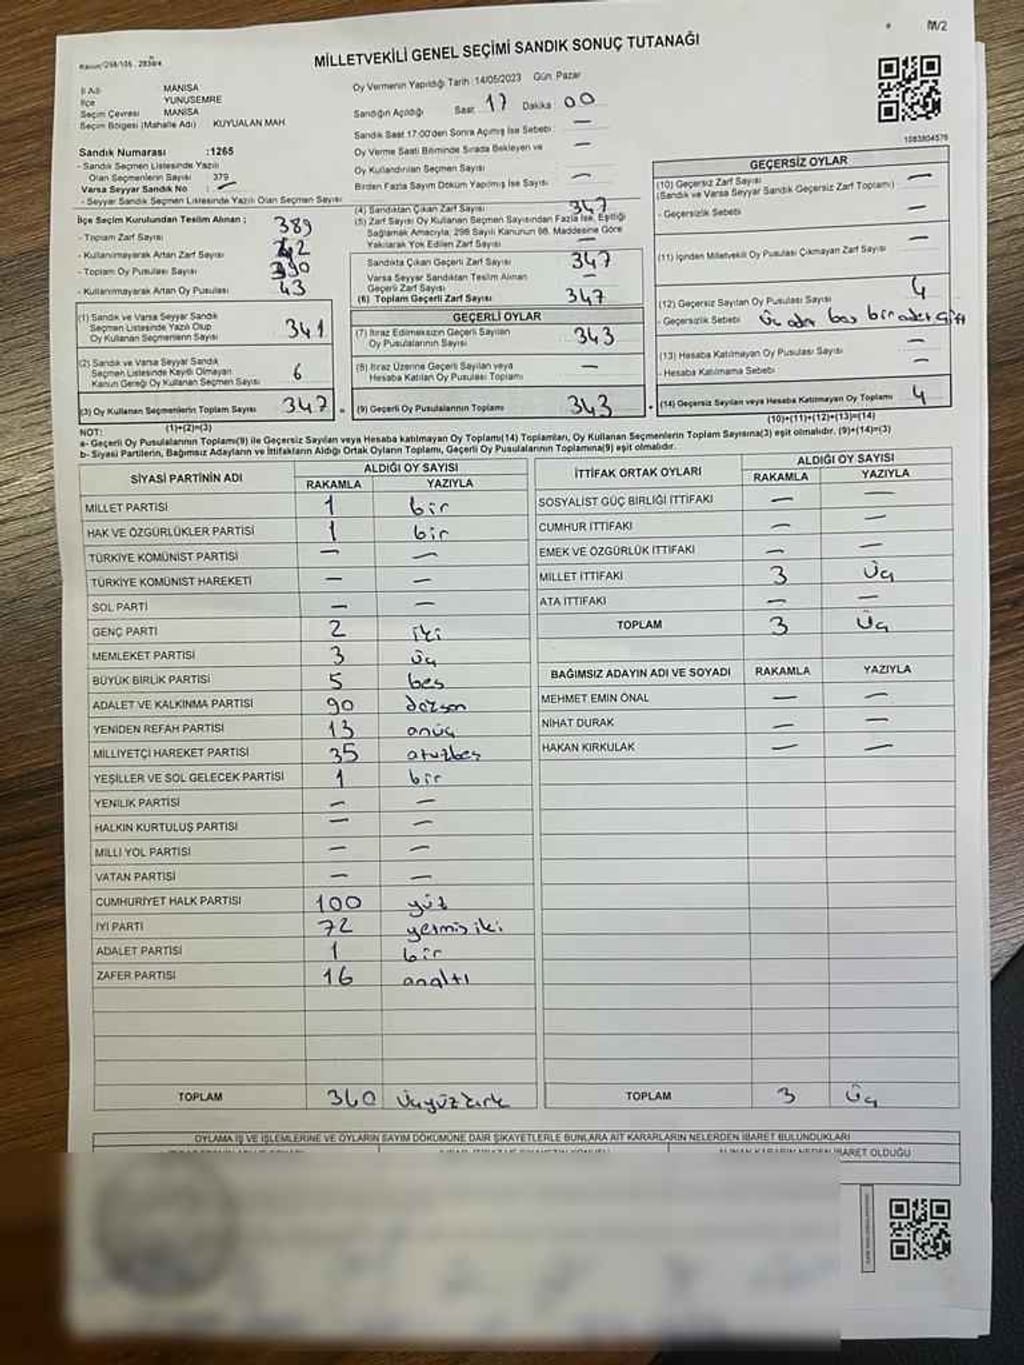 M/2
MİLLETVEKİLİ GENEL SEÇİMİ SANDIK SONUÇ TUTANAĞI
İl Adı MANİSA
İlçe YUNUSEMRE
Seçim Çevresi MANİSA
Seçim Bölgesi (Mahalle Adı) KUYUALAN MAH
Sandık Numarası :1265
- Sandık Seçmen Listesinde Yazılı
Olan Seçmenlerin Sayısı 379
Varsa Seyyar Sandık No : –
- Seyyar Sandık Seçmen Listesinde Yazılı Olan Seçmen Sayısı
Oy Vermenin Yapıldığı Tarih :14/05/2023 Gün Pazar
Sandığın Açıldığı Saat 17 Dakika 00
Sandık Saat 17:00'den Sonra Açılmış İse Sebebi : —
Oy Verme Saati Bitiminde Sırada Bekleyen ve —
Oy Kullandırılan Seçmen Sayısı
Birden Fazla Sayım Döküm Yapılmış İse Sayısı —
1083804576
İlçe Seçim Kurulundan Teslim Alınan ;
- Toplam Zarf Sayısı 389
- Kullanılmayarak Artan Zarf Sayısı 42
- Toplam Oy Pusulası Sayısı 390
- Kullanılmayarak Artan Oy Pusulası 43
(1) Sandık ve Varsa Seyyar Sandık
Seçmen Listesinde Yazılı Olup
Oy Kullanan Seçmenlerin Sayısı 341
(2) Sandık ve Varsa Seyyar Sandık
Seçmen Listesinde Kayıtlı Olmayan
Kanun Gereği Oy Kullanan Seçmen Sayısı 6
(3) Oy Kullanan Seçmenlerin Toplam Sayısı 347
(1)+(2)=(3)
(4) Sandıktan Çıkan Zarf Sayısı 347
(5) Zarf Sayısı Oy Kullanan Seçmen Sayısından Fazla İse, Eşitliği
Sağlamak Amacıyla, 298 Sayılı Kanunun 98. Maddesine Göre
Yakılarak Yok Edilen Zarf Sayısı —
Sandıkta Çıkan Geçerli Zarf Sayısı 347
Varsa Seyyar Sandıktan Teslim Alınan
Geçerli Zarf Sayısı —
(6) Toplam Geçerli Zarf Sayısı 347
GEÇERLİ OYLAR
(7) İtiraz Edilmeksizin Geçerli Sayılan
Oy Pusulalarının Sayısı 343
(8) İtiraz Üzerine Geçerli Sayılan veya
Hesaba Katılan Oy Pusulası Toplamı —
(9) Geçerli Oy Pusulalarının Toplamı 343
GEÇERSİZ OYLAR
(10) Geçersiz Zarf Sayısı —
(Sandık ve Varsa Seyyar Sandık Geçersiz Zarf Toplamı)
- Geçersizlik Sebebi —
(11) İçinden Milletvekili Oy Pusulası Çıkmayan Zarf Sayısı —
(12) Geçersiz Sayılan Oy Pusulası Sayısı 4
- Geçersizlik Sebebi Üç adet boş bir adet çift
(13) Hesaba Katılmayan Oy Pusulası Sayısı —
- Hesaba Katılmama Sebebi —
(14) Geçersiz Sayılan veya Hesaba Katılmayan Oy Toplamı 4
(10)+(11)+(12)+(13)=(14)
NOT:
a- Geçerli Oy Pusulalarının Toplamı(9) ile Geçersiz Sayılan veya Hesaba katılmayan Oy Toplamı(14) Toplamları, Oy Kullanan Seçmenlerin Toplam Sayısına(3) eşit olmalıdır. (9)+(14)=(3)
b- Siyasi Partilerin, Bağımsız Adayların ve İttifakların Aldığı Ortak Oyların Toplamı, Geçerli Oy Pusulalarının Toplamına(9) eşit olmalıdır.
SİYASİ PARTİNİN ADI ALDIĞI OY SAYISI
RAKAMLA YAZIYLA
MİLLET PARTİSİ 1 bir
HAK VE ÖZGÜRLÜKLER PARTİSİ 1 bir
TÜRKİYE KOMÜNİST PARTİSİ — —
TÜRKİYE KOMÜNİST HAREKETİ — —
SOL PARTİ — —
GENÇ PARTİ 2 iki
MEMLEKET PARTİSİ 3 üç
BÜYÜK BİRLİK PARTİSİ 5 beş
ADALET VE KALKINMA PARTİSİ 90 doksan
YENİDEN REFAH PARTİSİ 13 onüç
MİLLİYETÇİ HAREKET PARTİSİ 35 otuzbeş
YEŞİLLER VE SOL GELECEK PARTİSİ 1 bir
YENİLİK PARTİSİ — —
HALKIN KURTULUŞ PARTİSİ — —
MİLLİ YOL PARTİSİ — —
VATAN PARTİSİ — —
CUMHURİYET HALK PARTİSİ 100 yüz
İYİ PARTİ 72 yetmiş iki
ADALET PARTİSİ 1 bir
ZAFER PARTİSİ 16 onaltı
TOPLAM 340 Üçyüzkırk
İTTİFAK ORTAK OYLARI ALDIĞI OY SAYISI
RAKAMLA YAZIYLA
SOSYALİST GÜÇ BİRLİĞİ İTTİFAKI — —
CUMHUR İTTİFAKI — —
EMEK VE ÖZGÜRLÜK İTTİFAKI — —
MİLLET İTTİFAKI 3 Üç
ATA İTTİFAKI — —
TOPLAM 3 Üç
BAĞIMSIZ ADAYIN ADI VE SOYADI RAKAMLA YAZIYLA
MEHMET EMİN ÖNAL — —
NİHAT DURAK — —
HAKAN KIRKULAK — —
TOPLAM 3 Üç
OYLAMA İŞ VE İŞLEMLERİNE VE OYLARIN SAYIM DÖKÜMÜNE DAİR ŞİKAYETLERLE BUNLARA AİT KARARLARIN NELERDEN İBARET BULUNDUKLARI